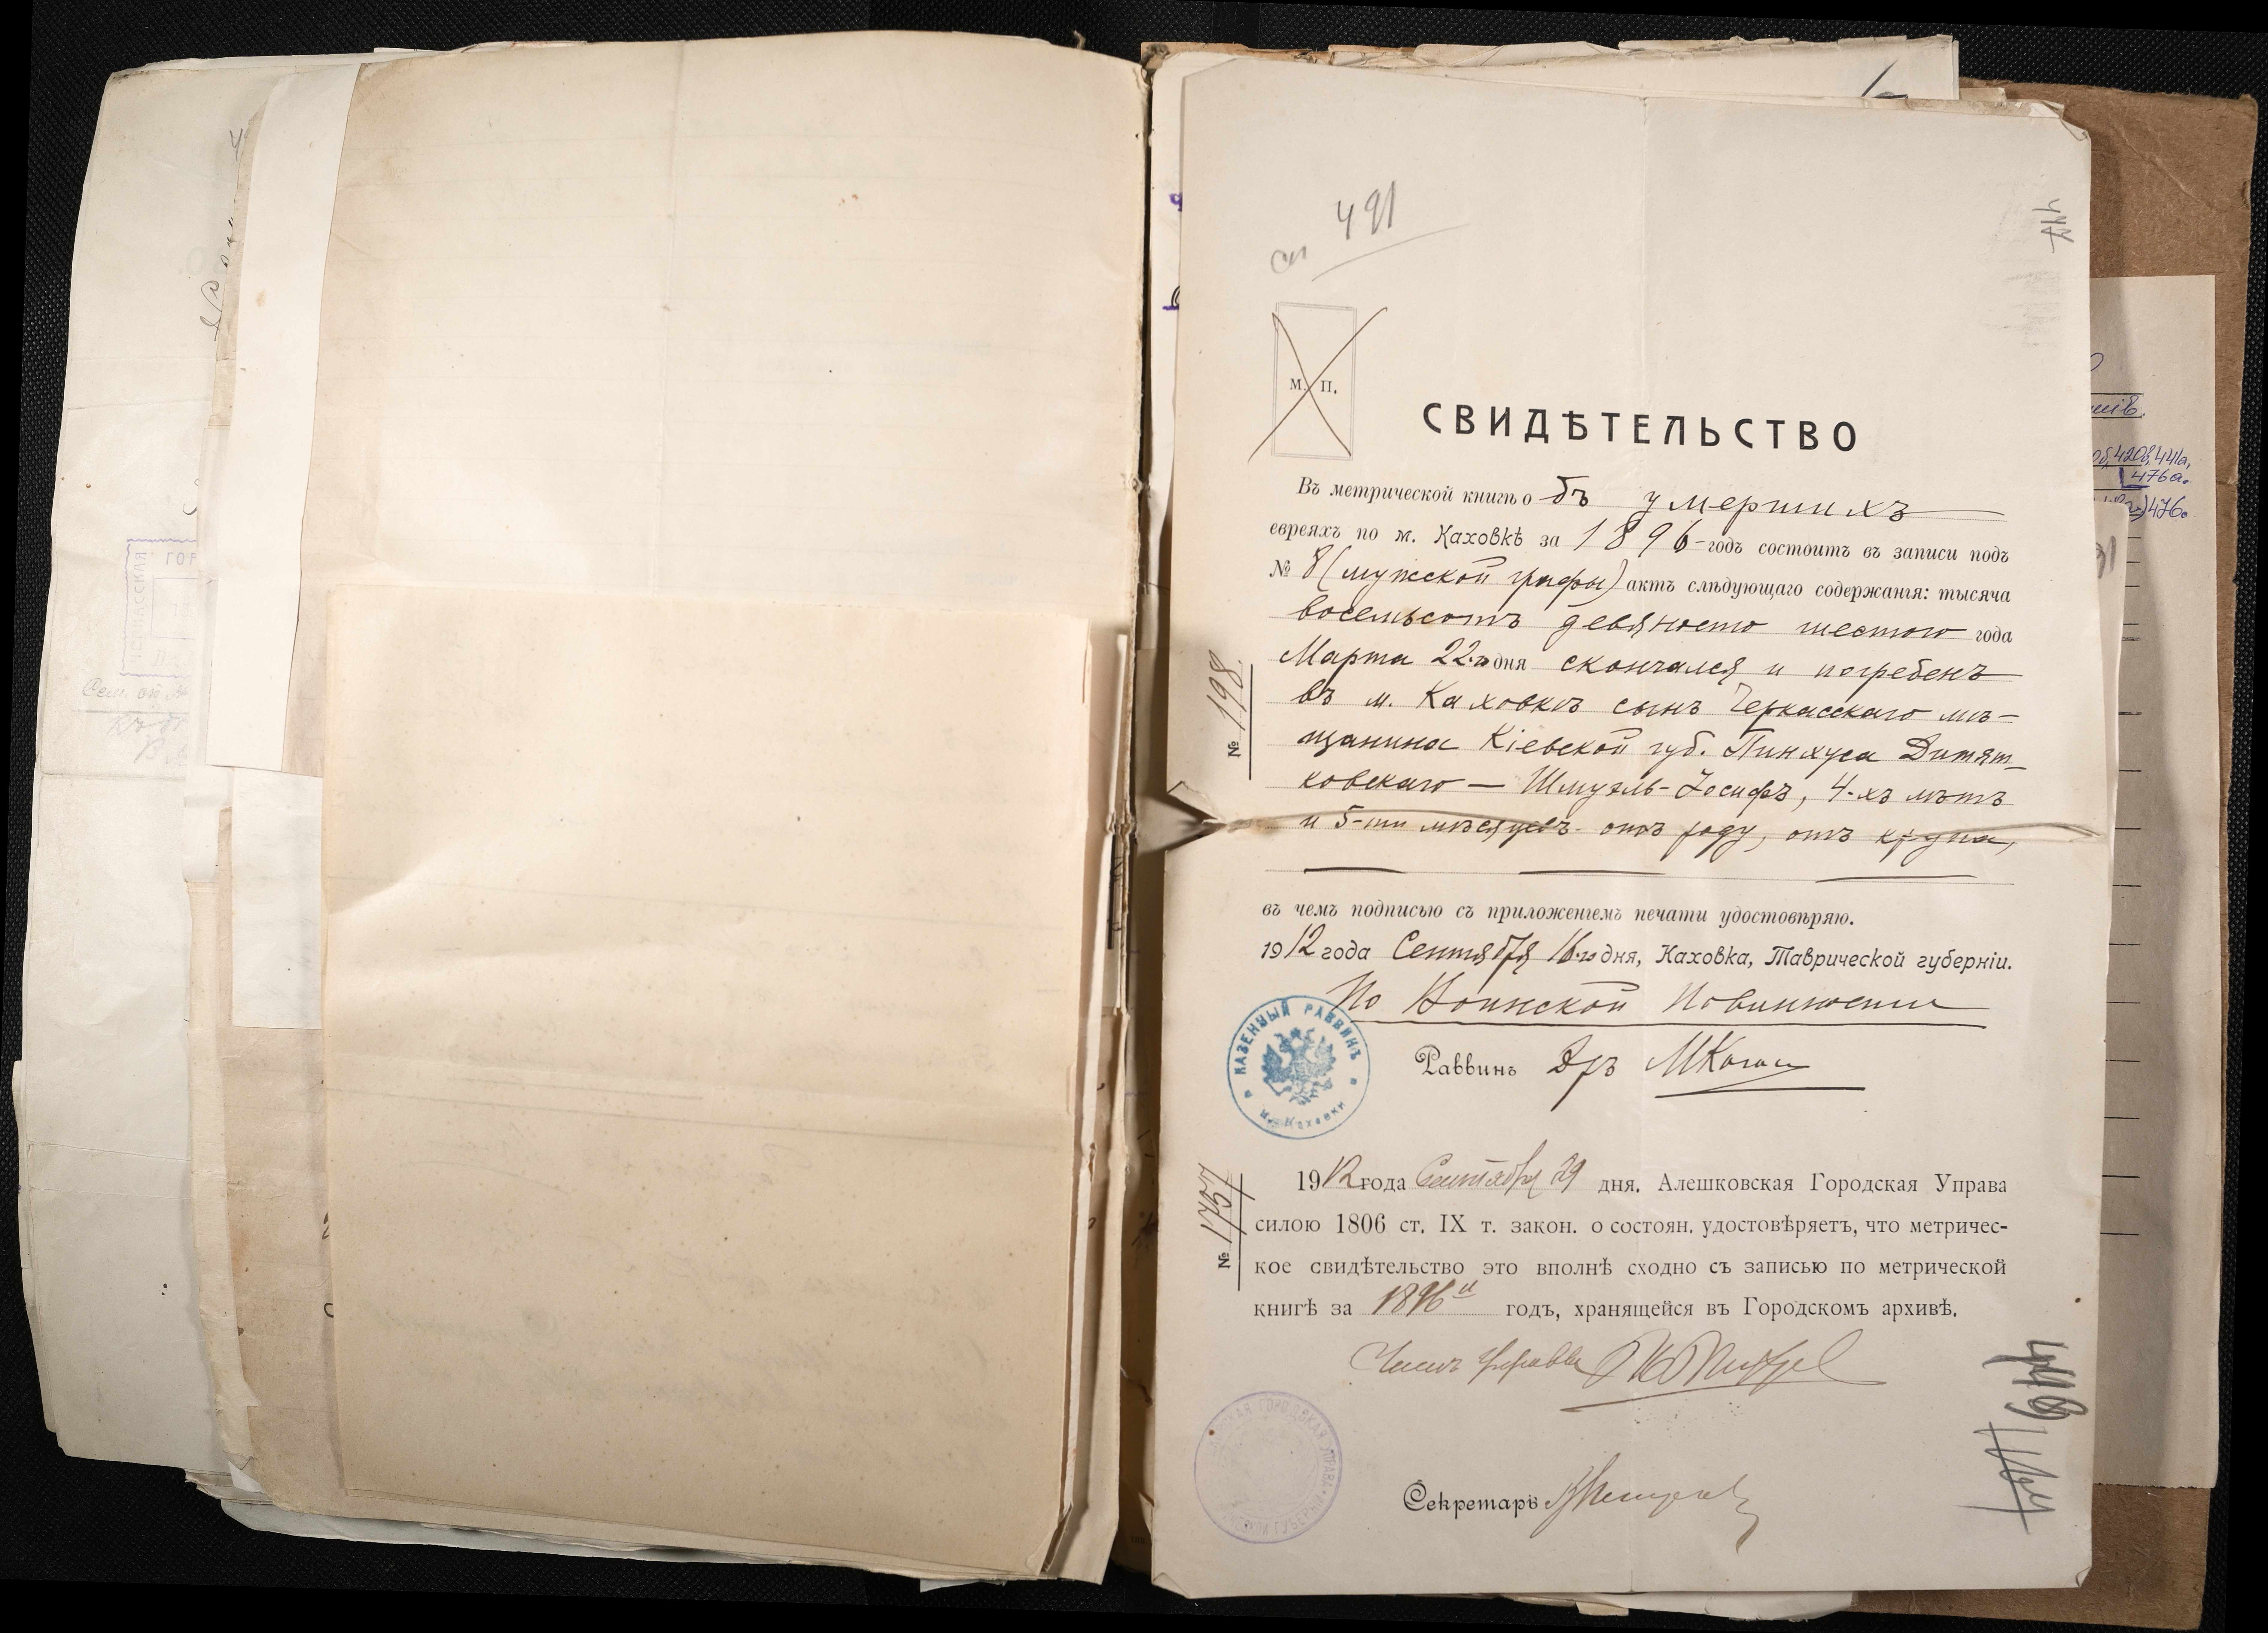 491
447
М. П.
СВИДѢТЕЛЬСТВО
Въ метрической книгѣ объ умершихъ
евреяхъ по м. Каховкѣ за 1896-годъ состоитъ въ записи подъ
№ 8 (мужской графы) актъ слѣдующаго содержанія: тысяча
восемьсотъ девяносто шестого года
Марта 22-го дня скончался и погребенъ
въ м. Каховкѣ сынъ Черкасскаго мѣ-
щанина Кіевской губ. Пинхуса Дитят-
ковскаго — Шмуэль-Іосифъ, 4-хъ лѣтъ
и 5-ти мѣсяцевъ отъ роду, отъ крупа,
№ 198
въ чемъ подписью съ приложеніемъ печати удостовѣряю.
1912 года Сентября 16-го дня, Каховка, Таврической губерніи.
По Воинской Повинности
Раввинъ Дръ МКоган
КАЗЕННЫЙ РАВВИНЪ
м. Каховки
№ 1757
1912 года Сентября 29 дня. Алешковская Городская Управа
силою 1806 ст. IX т. закон. о состоян. удостовѣряетъ, что метричес-
кое свидѣтельство это вполнѣ сходно съ записью по метрической
книгѣ за 1896й годъ, хранящейся въ Городскомъ архивѣ.
Членъ Управы
Секретарь
ГОРОДСКАЯ УПРАВА
420в, 441а,
476а.
476.